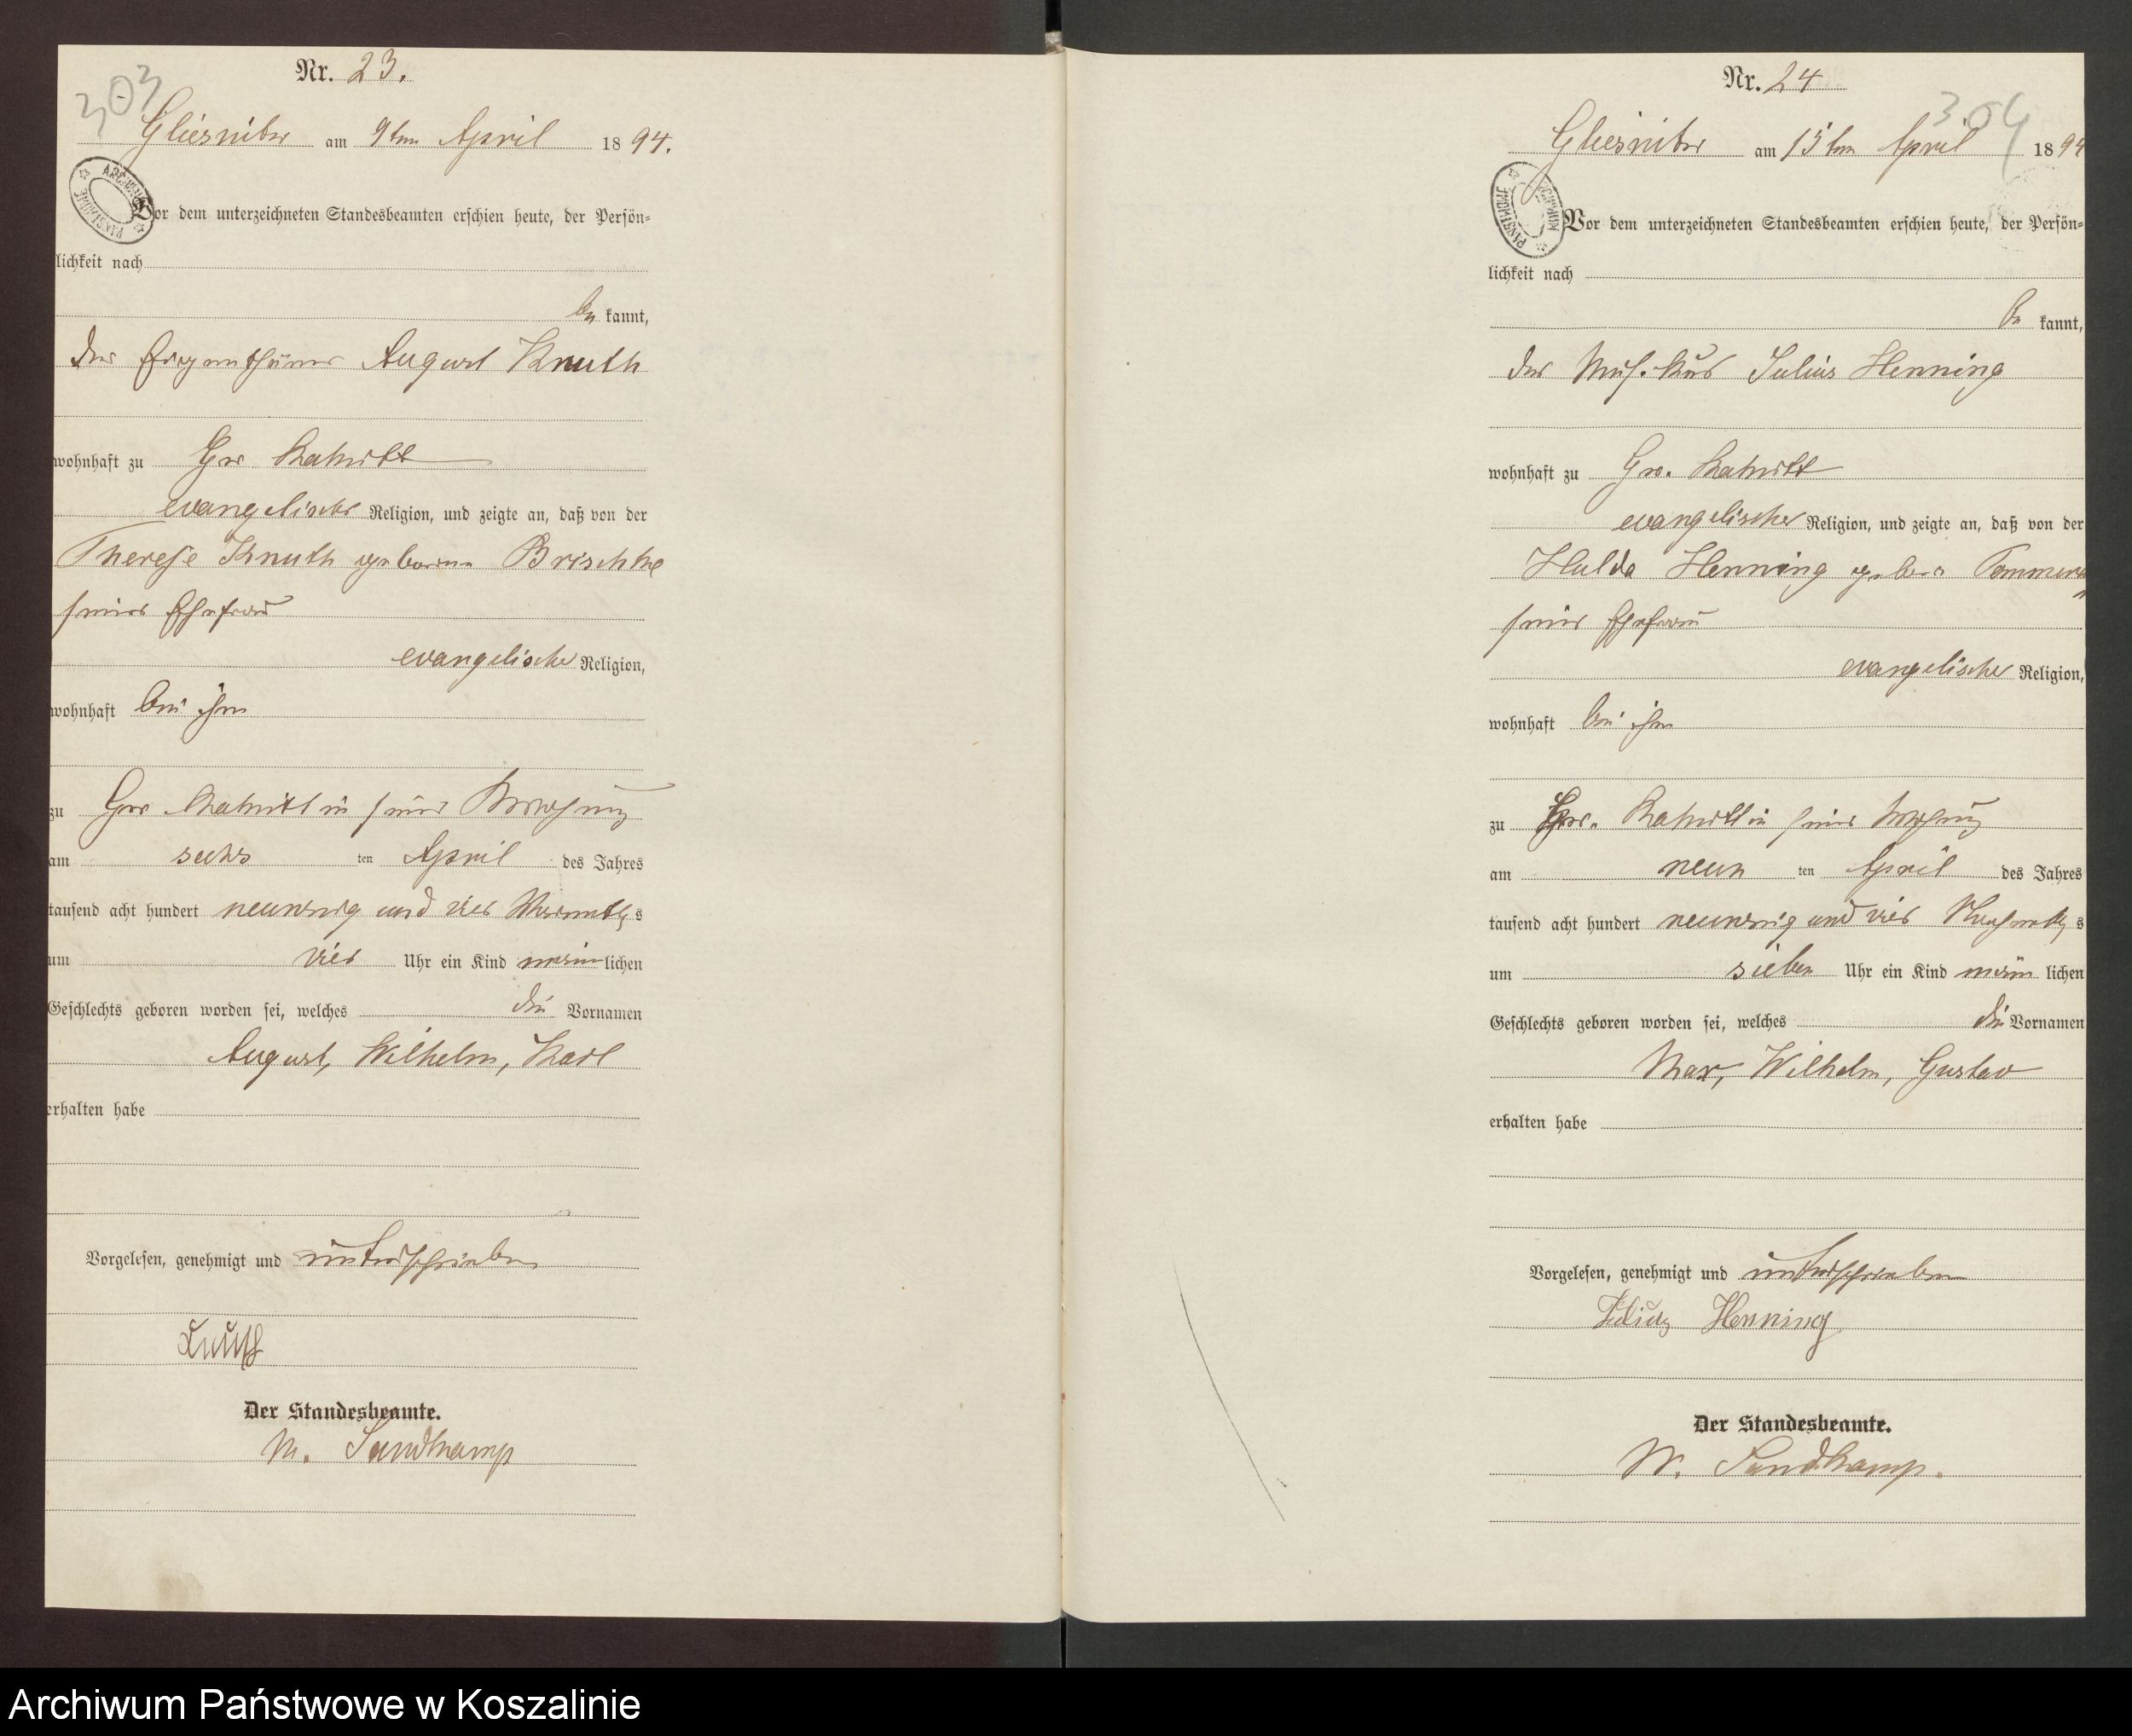 Nr. 23.
303
Gliesnitz am 9ten April 1894.
ARCHIWUM PAŃSTWOWE
Vor dem unterzeichneten Standesbeamten erschien heute, der Persön-
lichkeit nach
be kannt,
der Eigenthümer August Knuth
wohnhaft zu Gr Rakitt
evangelischer Religion, und zeigte an, daß von der
Therese Knuth geborene Brischke
seiner Ehefrau
evangelischer Religion,
wohnhaft bei ihm
zu Gr Rakitt in seiner Wohnung
am sechs ten April des Jahres
tausend acht hundert neunzig und vier Vormittags
um vier Uhr ein Kind männlichen
Geschlechts geboren worden sei, welches die Vornamen
August, Wilhelm, Karl
erhalten habe
Vorgelesen, genehmigt und unterschrieben
Knuth
Der Standesbeamte.
W. Sandkamp
Nr. 24
304
Gliesnitz am 15ten April 1894
ARCHIWUM PAŃSTWOWE
Vor dem unterzeichneten Standesbeamten erschien heute, der Persön-
lichkeit nach
be kannt,
der Musikus Julius Henning
wohnhaft zu Gr. Rakitt
evangelischer Religion, und zeigte an, daß von der
Hulda Henning
seiner Ehefrau
evangelischer Religion,
wohnhaft bei ihm
zu Gr. Rakitt in seiner Wohnung
am neun ten April des Jahres
tausend acht hundert neunzig und vier Nachmittags
um sieben Uhr ein Kind männ lichen
Geschlechts geboren worden sei, welches die Vornamen
Max, Wilhelm, Gustav
erhalten habe
Vorgelesen, genehmigt und unterschrieben
Julius Henning
Der Standesbeamte.
W. Sandkamp.
Archiwum Państwowe w Koszalinie